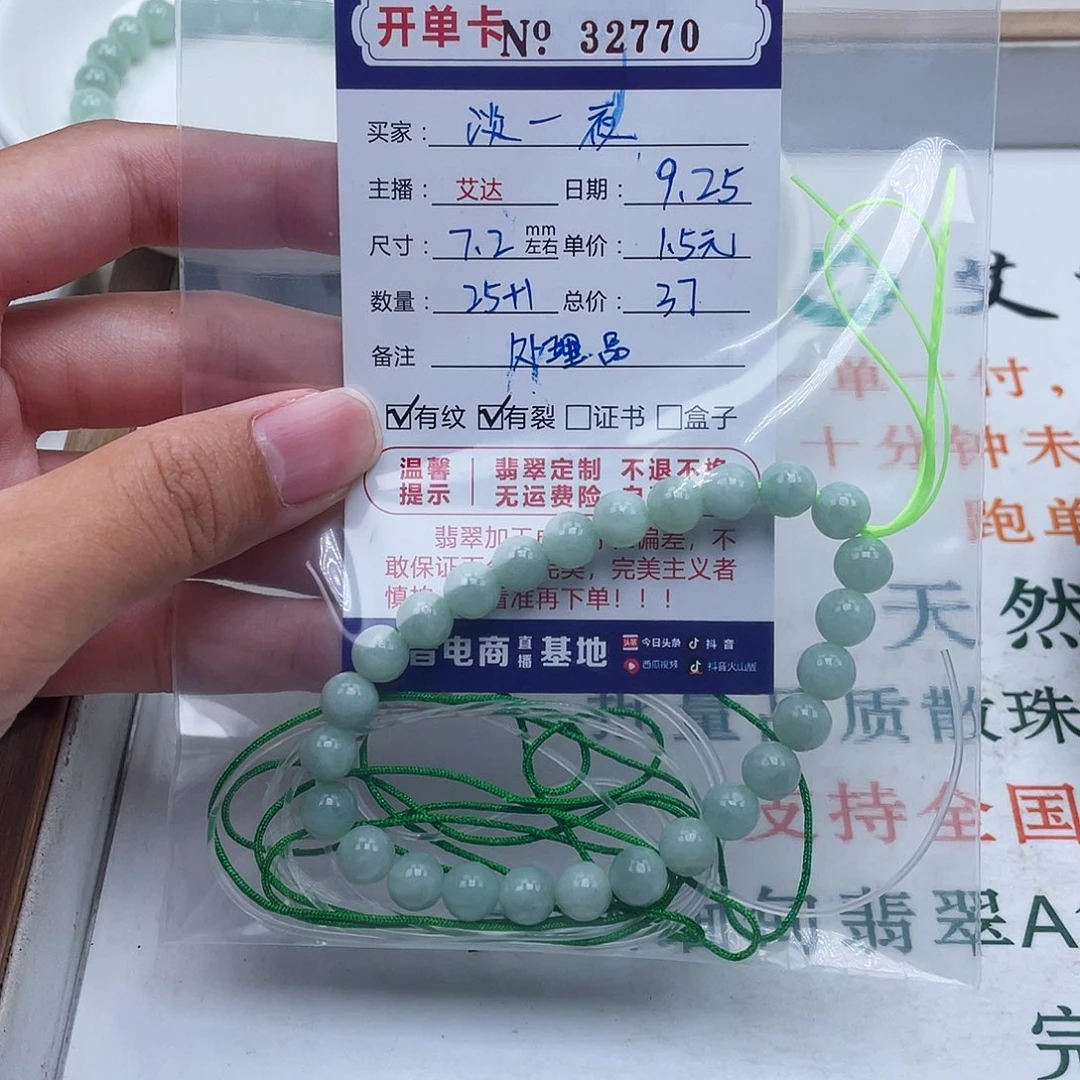 开单卡 Nº 32770
买家： 淡一夜
主播： 艾达 日期： 9.25
尺寸： 7.2 mm左右 单价： 1.5元
数量： 25+1 总价： 37
备注 处理品
☑有纹 ☑有裂 □证书 □盒子
温馨提示 翡翠定制 不退不换
无运费险
翡翠加工 偏差，不
敢保证 完美，完美主义者
慎 看准再下单！！！
电商 直播 基地 头条 今日头条 抖音
西瓜视频 抖音火山版
艾
一单一付，
十分钟未
跑单
天然
质散珠
支持全国
甸翡翠A
完